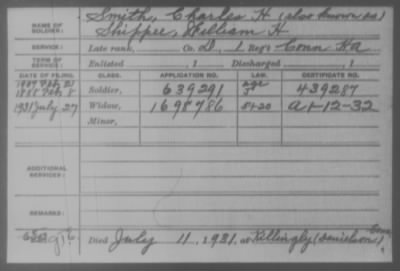 Smith, Charles H (also known as)
NAME OF SOLDIER: Shippee, William H
SERVICE: Late rank, Co. D, 1 Reg't Conn HA
TERM OF SERVICE: Enlisted , 1 Discharged , 1
DATE OF FILING. CLASS. APPLICATION NO. LAW. CERTIFICATE NO.
1888 Feb 8 Soldier, 639291 439287
1931 July 27 Widow, 1698786 a 1-12-32
Minor,
ADDITIONAL SERVICES:
REMARKS:
Died July 11, 1931, at Killingly (Danielson) Conn